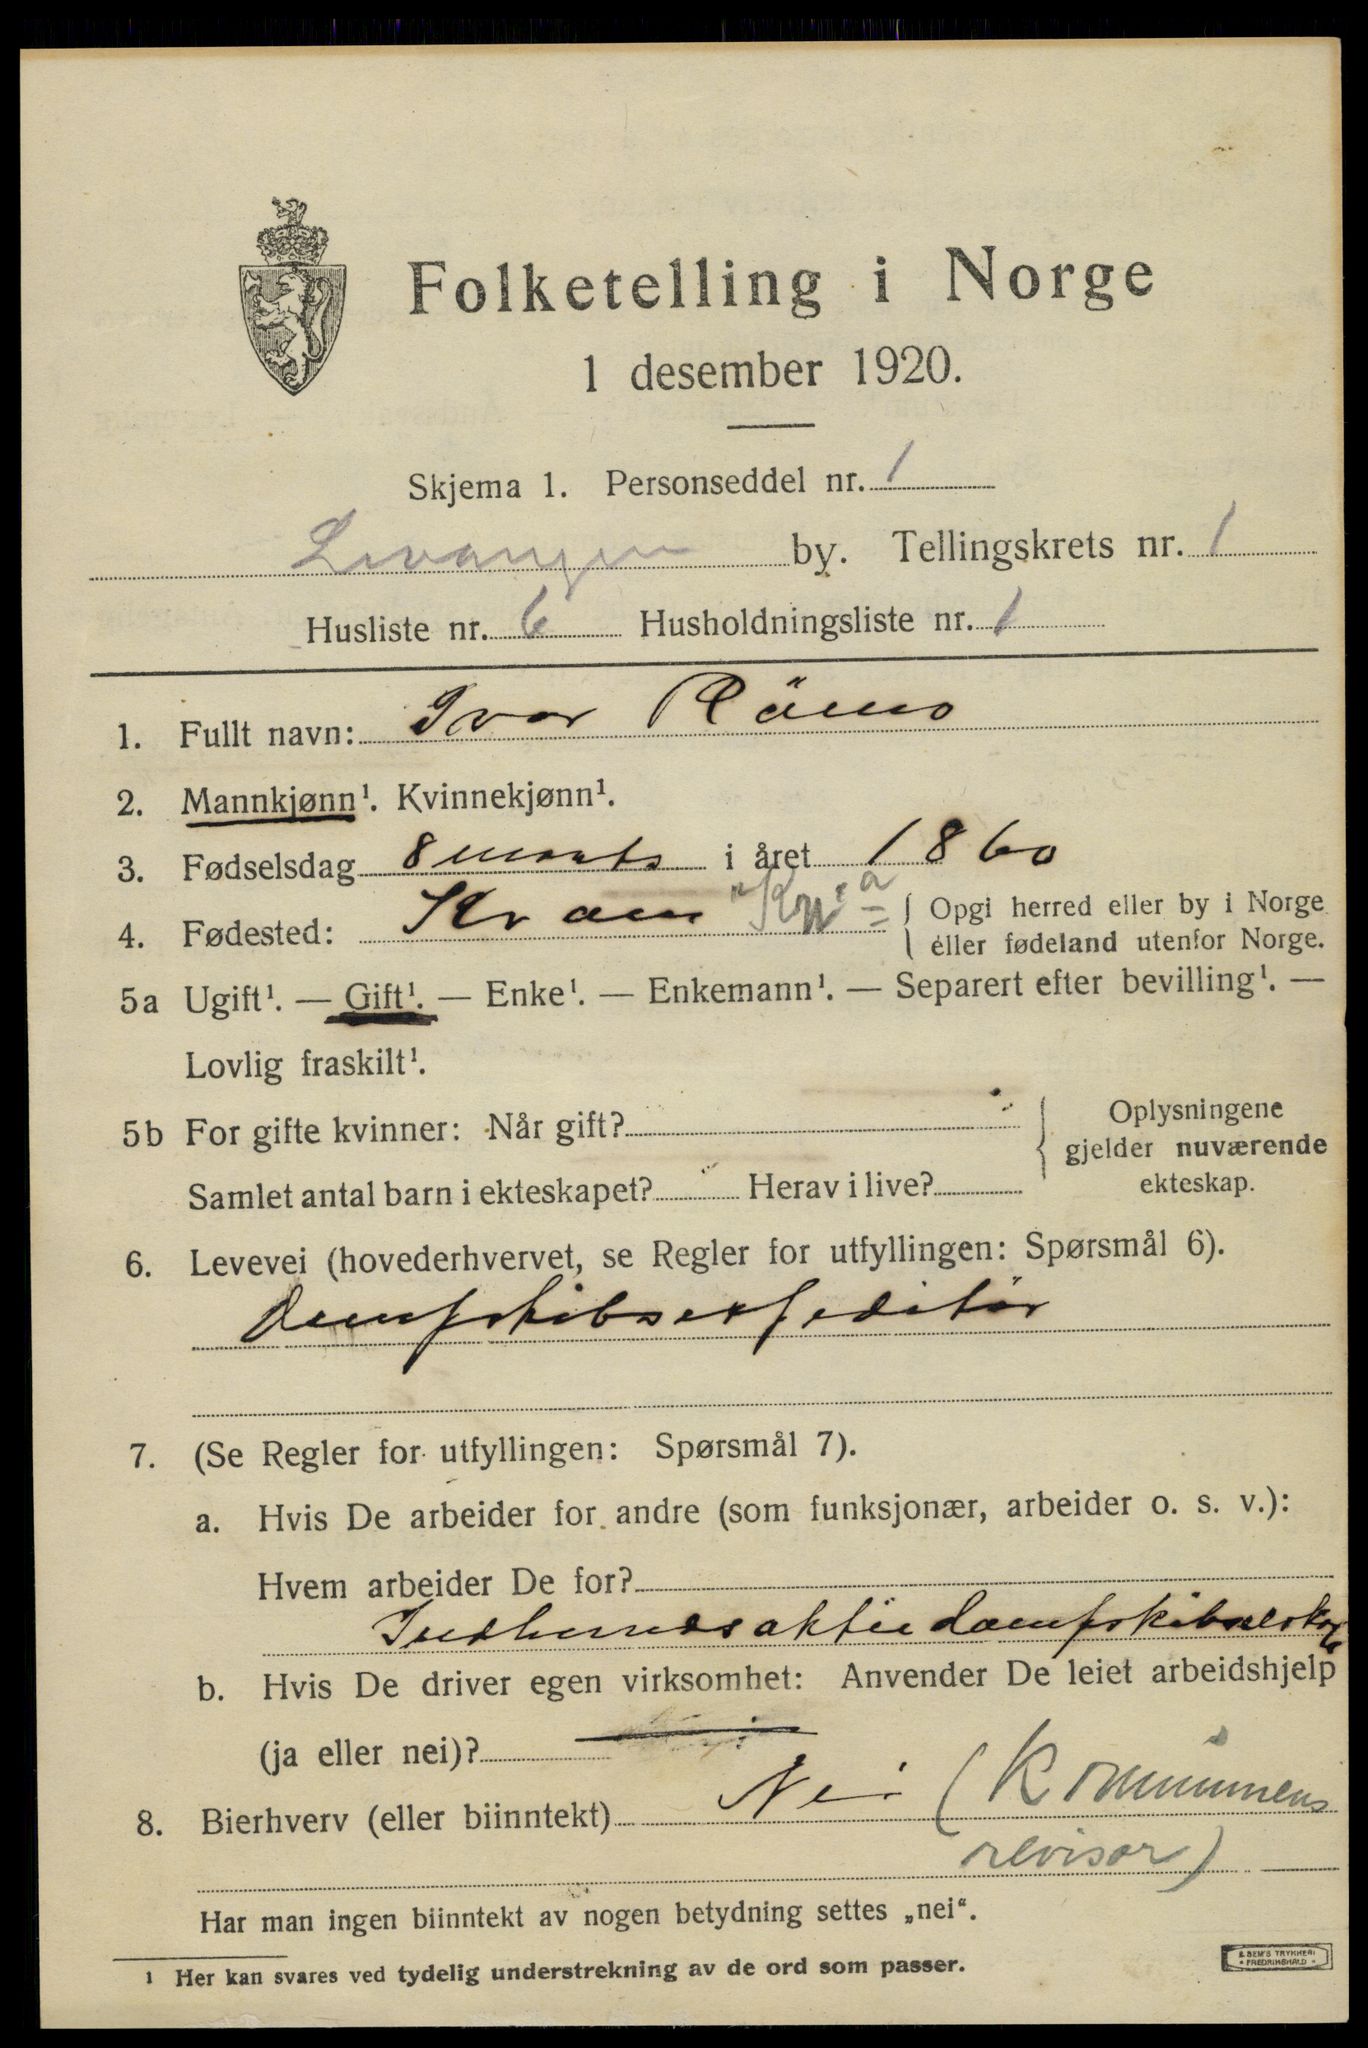 Folketelling i Norge
1 desember 1920.
Skjema 1. Personseddel nr. 1
Levanger by. Tellingskrets nr. 1
Husliste nr. 6 Husholdningsliste nr. 1
1. Fullt navn: Ivar Römo
2. Mannkjønn¹. Kvinnekjønn¹.
3. Fødselsdag 8 marts i året 1860
4. Fødested: Kvam { Opgi herred eller by i Norge
eller fødeland utenfor Norge.
5a Ugift¹. — Gift¹. — Enke¹. — Enkemann¹. — Separert efter bevilling¹. —
Lovlig fraskilt¹.
5b For gifte kvinner: Når gift?
Samlet antal barn i ekteskapet? Herav i live?
Oplysningene
gjelder nuværende
ekteskap.
6. Levevei (hovederhvervet, se Regler for utfyllingen: Spørsmål 6).
Dampskibsexpeditør
7. (Se Regler for utfyllingen: Spørsmål 7).
a. Hvis De arbeider for andre (som funksjonær, arbeider o. s. v.):
Hvem arbeider De for?
Indherredsaktiedampskibselskap
b. Hvis De driver egen virksomhet: Anvender De leiet arbeidshjelp
(ja eller nei)?
8. Bierhverv (eller biinntekt) Nei (Kommunens
revisor)
Har man ingen biinntekt av nogen betydning settes „nei“.
¹ Her kan svares ved tydelig understrekning av de ord som passer.
E SEM'S TRYKKERI
FREDRIKSHALD